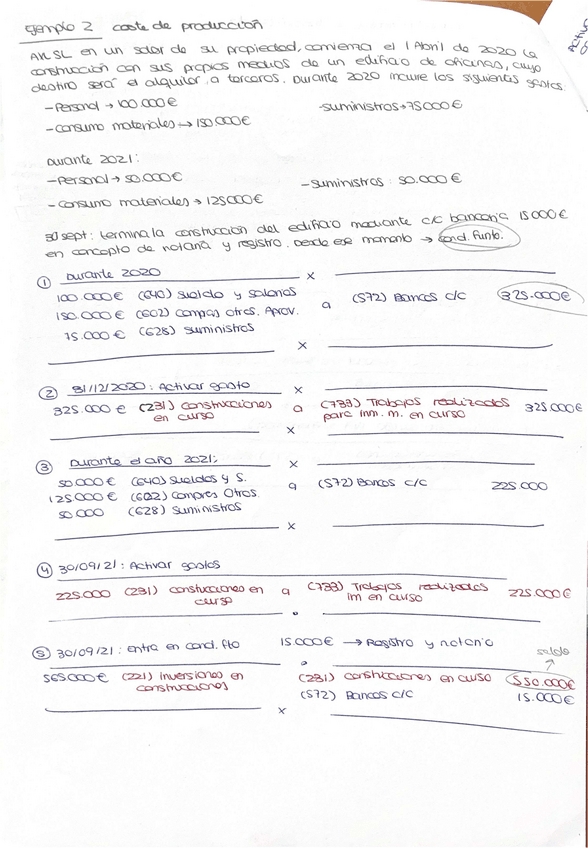 ejemplo 2 coste de producción
Activa
co
AXL SL en un solar de su propiedad, comienza el 1 Abril de 2020 la
construcción con sus propios medios de un edificio de oficinas, cuyo
destino será el alquiler a terceros. Durante 2020 incurre los siguientes gastos.
- Personal → 100.000 €
- suministros → 75000 €
- consumo materiales → 150.000€
Durante 2021:
- Personal → 50.000€
- suministros: 50.000€
- consumo materiales → 125000€
30 sept: termina la construcción del edificio mediante c/c bancaria 15000€
en concepto de notaría y registro. Desde ese momento → cond. funto.
① Durante 2020 x
100.000€ (640) sueldo y salarios
150.000€ (602) compras otros. Aprov.
75.000€ (628) suministros
a (572) Bancos c/c 325.000€
x
② 31/12/2020: Activar gasto x
325.000 € (231) construcciones en curso a (733) Trabajos realizados para inm. m. en curso 325000€
x
③ Durante el año 2021: x
50.000€ (640) sueldos y S.
125.000€ (602) compras Otros.
50.000 (628) suministros
a (572) Bancos c/c 225.000
x
④ 30/09/21: Activar gastos
225.000 (231) construcciones en curso a (733) Trabajos realizados im en curso 225.000€
⑤ 30/09/21: entra en cond. fto 15.000€ → Registro y notario
saldo
565000€ (221) inversiones en construcciones
a (231) construcciones en curso 550.000€
(572) Bancos c/c 15.000€
x